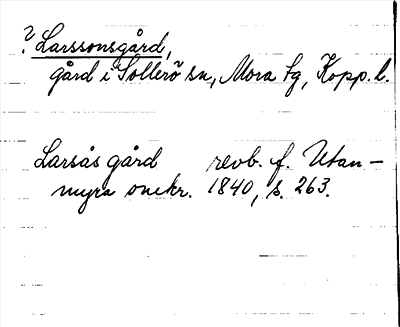 ? Larssonsgård,
gård i Sollerö sn, Mora tg, Kopp. l.
Larsås gård revb. f. Utan-
myra omkr. 1840, s. 263.